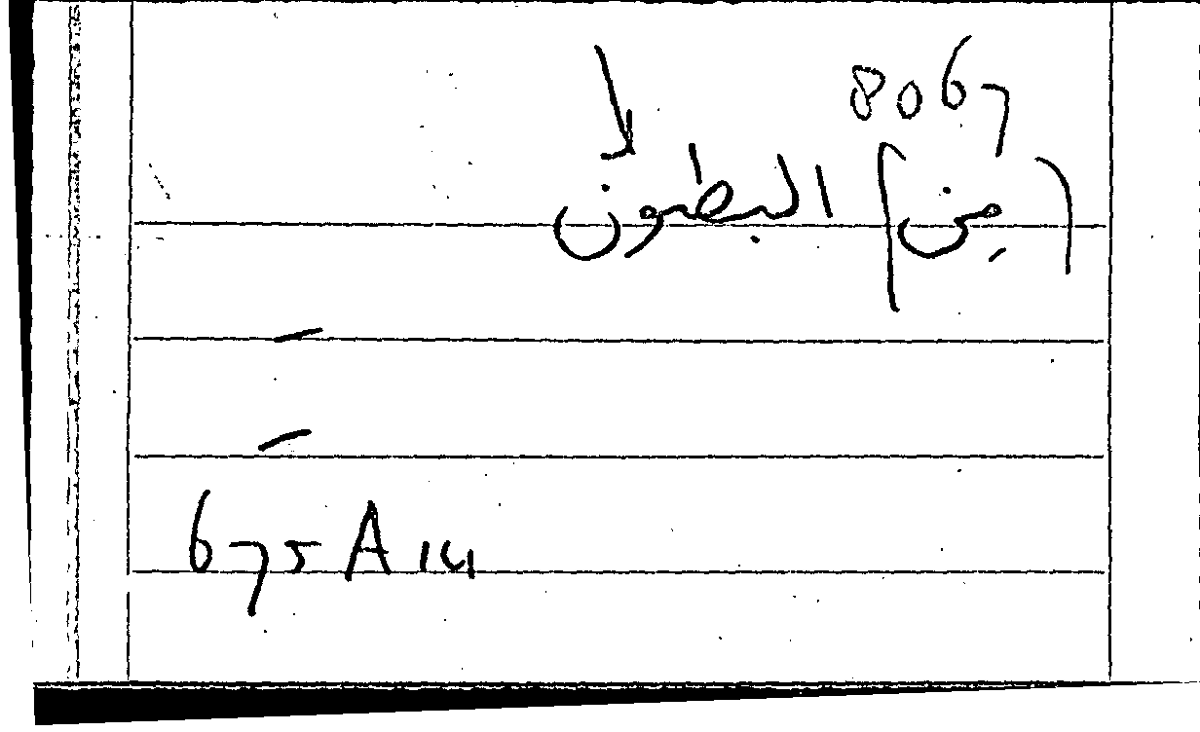 8067
(من) البطون لا
675 A 14